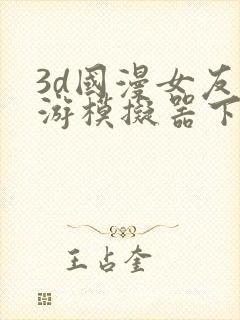 3d國漫女友
游模擬器下
王占奎